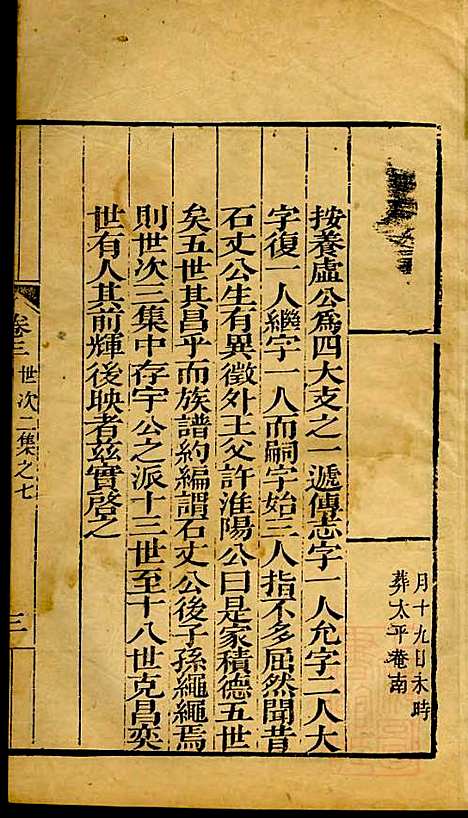 月十九日未時
葬太平菴南
按養虛公為四大支之一遞傳志字一人允字二人大
字復一人繼字一人而嗣字始三人指不多屈然聞昔
石丈公生有異徵外王父許淮陽公曰是家積德五世
矣五世其昌乎而族譜約編謂石丈公後子孫繩繩焉
則世次三集中存宇公之派十三世至十八世克昌奕
世有人其前輝後映者茲實啓之
卷三 世次二集之七 三